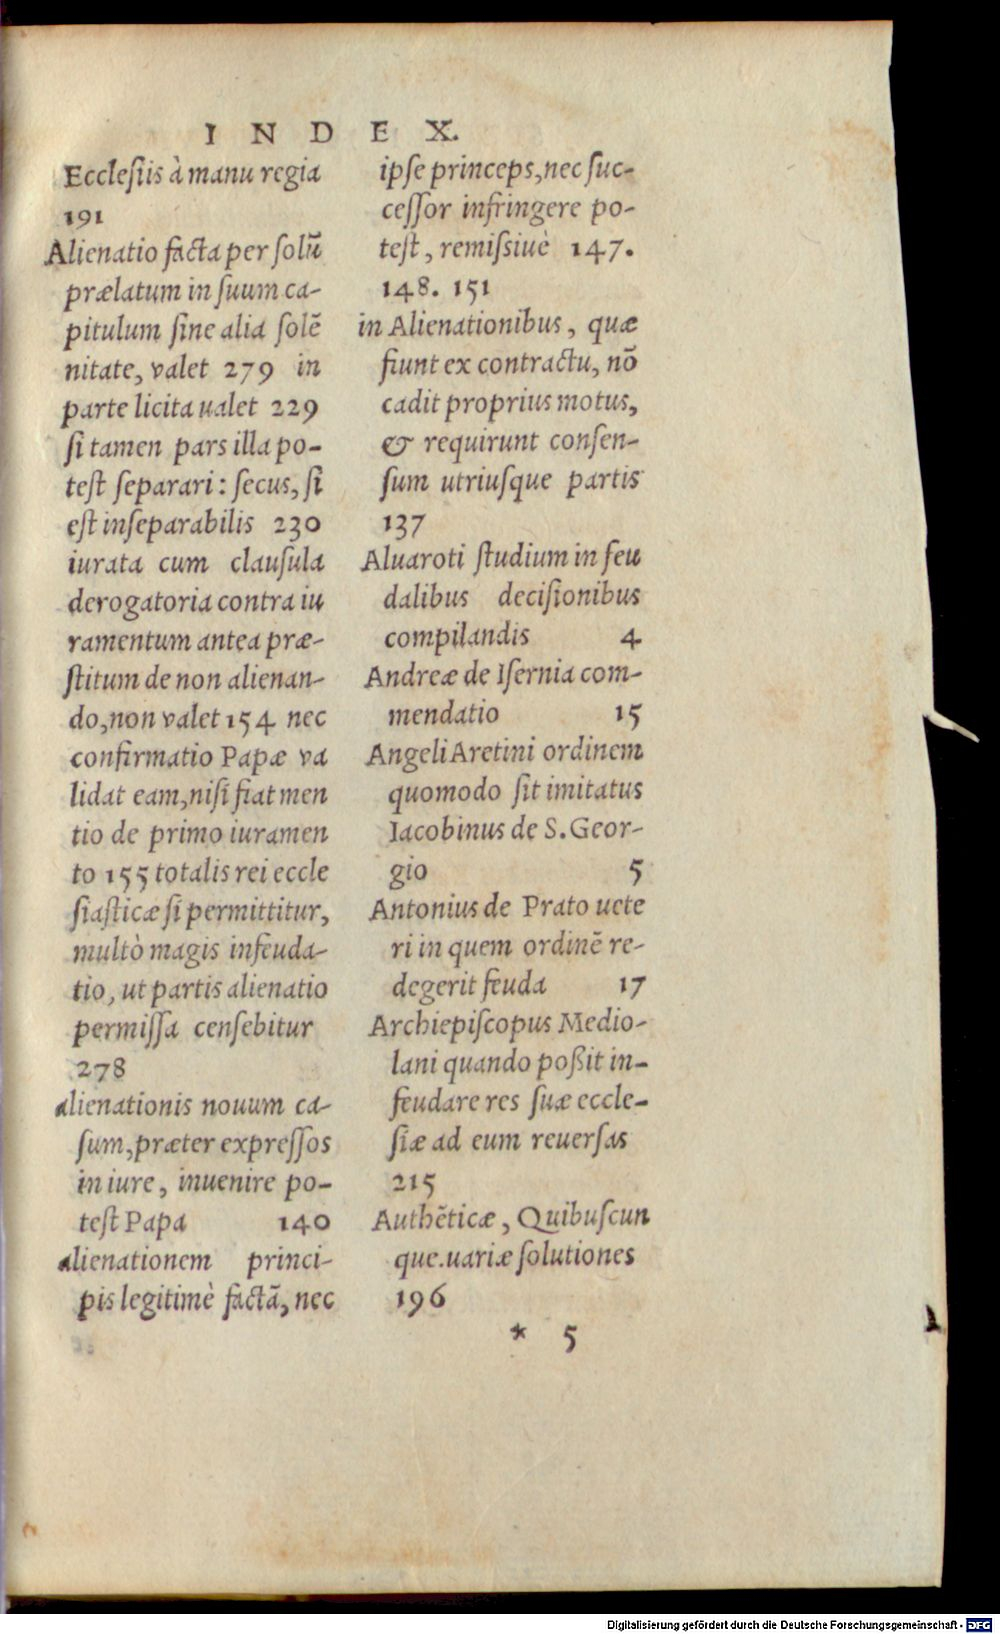 INDEX.
Ecclesiis à manu regia
191
Alienatio facta per solũ
prælatum in suum ca-
pitulum sine alia solẽ
nitate, valet 279 in
parte licita ualet 229
si tamen pars illa po-
test separari: secus, si
est inseparabilis 230
iurata cum clausula
derogatoria contra iu
ramentum antea præ-
stitum de non alienan-
do, non valet 154 nec
confirmatio Papæ va
lidat eam, nisi fiat men
tio de primo iuramen
to 155 totalis rei eccle
siasticæ si permittitur,
multò magis infeuda-
tio, ut partis alienatio
permissa censebitur
278
alienationis nouum ca-
sum, præter expressos
in iure, inuenire po-
test Papa 140
alienationem princi-
pis legitimè factã, nec
ipse princeps, nec suc-
cessor infringere po-
test, remissiuè 147.
148. 151
in Alienationibus, quæ
fiunt ex contractu, nõ
cadit proprius motus,
& requirunt consen-
sum utriusque partis
137
Aluaroti studium in feu
dalibus decisionibus
compilandis 4
Andreæ de Isernia com-
mendatio 15
Angeli Aretini ordinem
quomodo sit imitatus
Iacobinus de S. Geor-
gio 5
Antonius de Prato uete
ri in quem ordinẽ re-
degerit feuda 17
Archiepiscopus Medio-
lani quando poßit in-
feudare res suæ eccle-
siæ ad eum reuersas
215
Authẽticæ, Quibuscun
que. uariæ solutiones
196
* 5
Digitalisierung gefördert durch die Deutsche Forschungsgemeinschaft - DFG